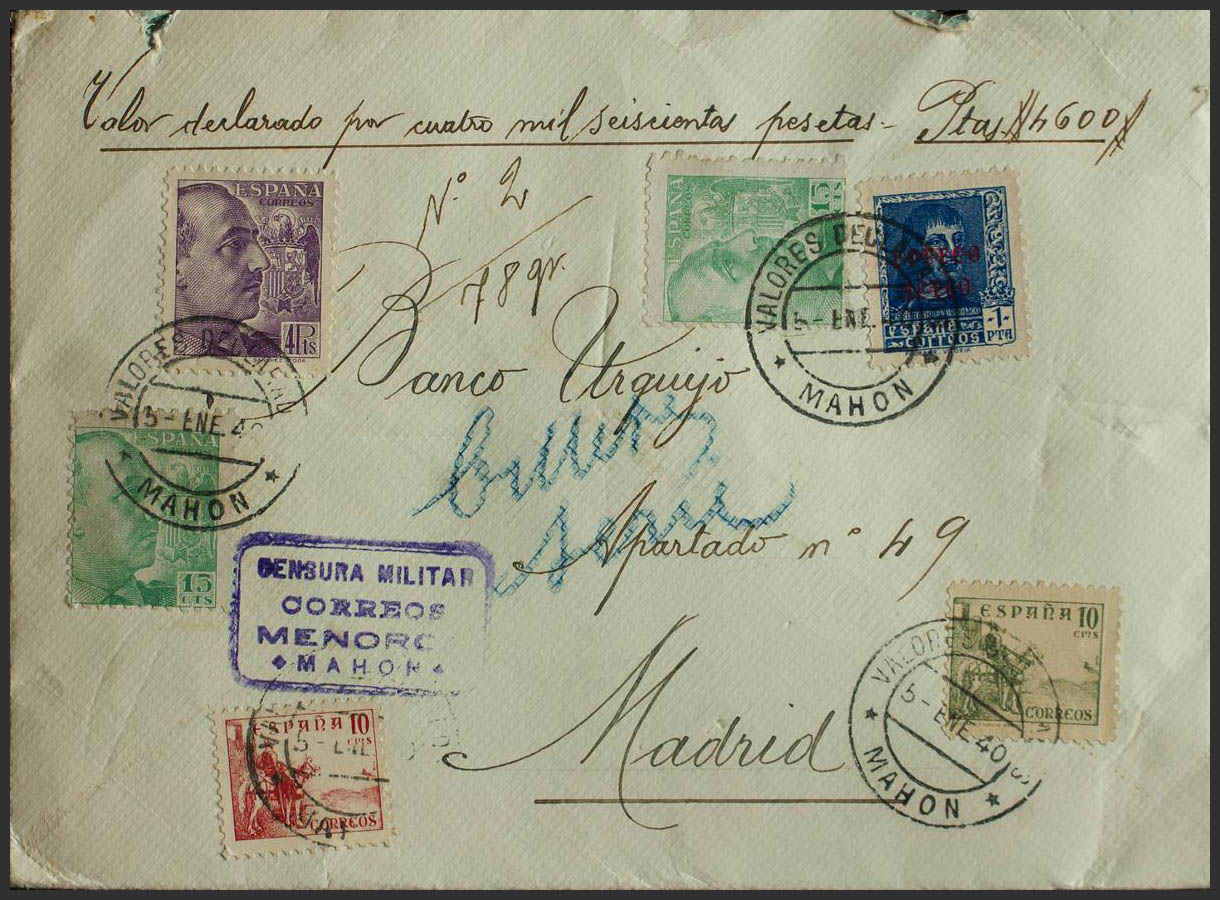 Valor declarado por cuatro mil seiscientas pesetas- Ptas #4600#
Nº 2
78 gr.
ESPAÑA
CORREOS
4 Pts
ESPAÑA
CORREOS
15
CORREO
AEREO
ESPAÑA
CORREOS
-1-
PTA
VALORES DECLA
5-ENE.
MAHON
Banco Urquijo
VALORES DE
5-ENE.4
MAHON
ESPAÑA
15
CTS
billetes
serie
Apartado nº 49
CENSURA MILITAR
CORREOS
MENORC
MAHON
Madrid
ESPAÑA 10
CTMS
CORREOS
VALORES
5-ENE.40
MAHON
ESPAÑA 10
CTMS
5-ENE
CORREOS